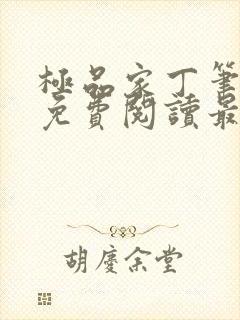 極品家丁筆
免費閱讀最
胡慶余堂